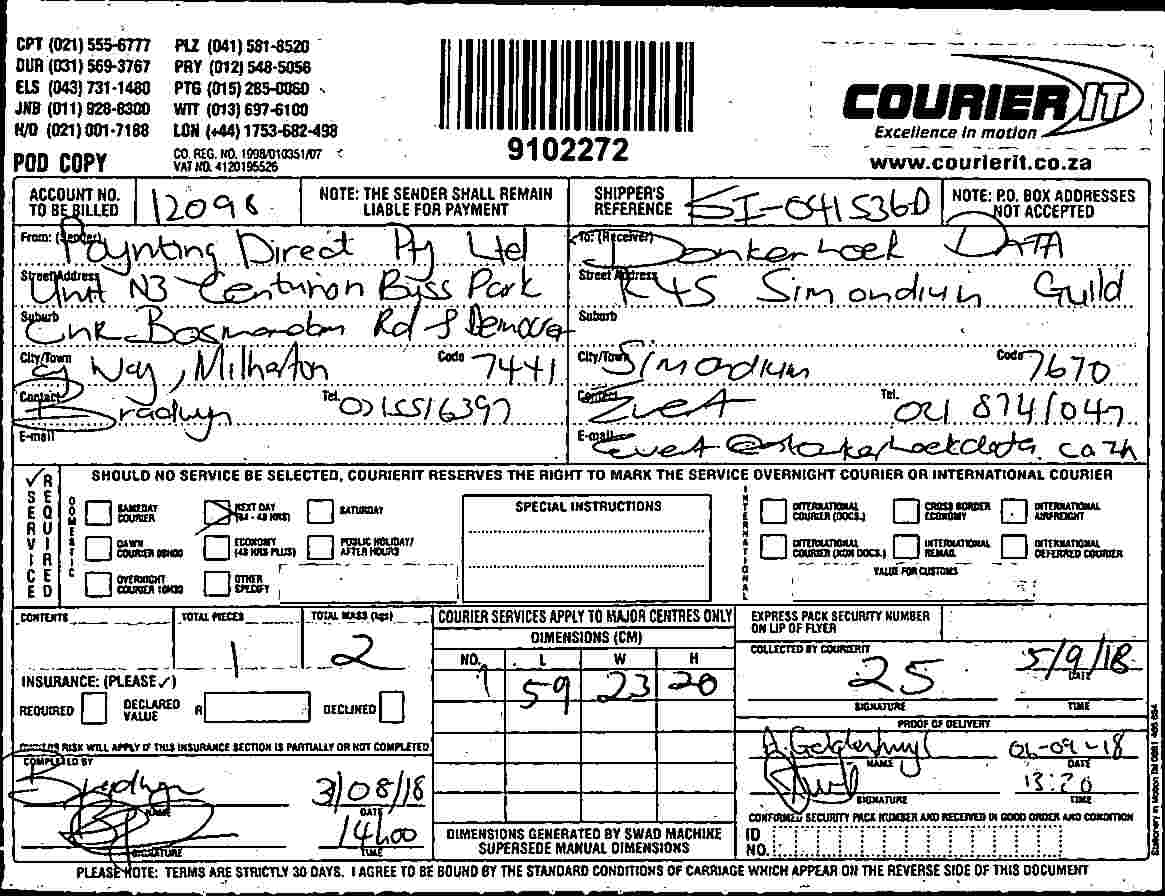 CPT (021) 555-6777 PLZ (041) 581-8520
DUR (031) 569-3767 PRY (012) 548-5056
ELS (043) 731-1480 PTG (015) 285-0060
JNB (011) 928-6300 WIT (013) 697-6100
H/O (021) 001-7188 LON (+44) 1753-682-498
POD COPY
CO. REG. NO. 1998/010351/07
VAT NO. 4120195526
9102272
COURIER IT
Excellence in motion
www.courierit.co.za
ACCOUNT NO. TO BE BILLED 12098
NOTE: THE SENDER SHALL REMAIN LIABLE FOR PAYMENT
SHIPPER'S REFERENCE SI-041536D
NOTE: P.O. BOX ADDRESSES NOT ACCEPTED
From: (Sender) Poynting Direct Pty Ltd
Street Address Unit N3 Centurion Buss Park
Suburb Cnr Bosmandam Rd & Democra
City/Town cy Way, Milnerton Code 7441
Contact Bradwyn Tel. 0215516397
E-mail
To: (Receiver) Donkerhoek DATA
Street Address R45 Simondium Guild
Suburb
City/Town Simondium Code 7670
Contact Evert Tel. 021 8741047
E-mail evert@donkerhoekdata.co.za
SHOULD NO SERVICE BE SELECTED, COURIERIT RESERVES THE RIGHT TO MARK THE SERVICE OVERNIGHT COURIER OR INTERNATIONAL COURIER
✓ SERVICE REQUIRED
DOMESTIC
SAMEDAY COURIER
NEXT DAY (24 - 48 HRS)
SATURDAY
DAWN COURIER 08H00
ECONOMY (48 HRS PLUS)
PUBLIC HOLIDAY/ AFTER HOURS
OVERNIGHT COURIER 10H30
OTHER SPECIFY
SPECIAL INSTRUCTIONS
INTERNATIONAL
INTERNATIONAL COURIER (DOCS.)
CROSS BORDER ECONOMY
INTERNATIONAL AIRFREIGHT
INTERNATIONAL COURIER (NON DOCS.)
INTERNATIONAL REMAIL
INTERNATIONAL DEFERRED COURIER
VALUE FOR CUSTOMS
CONTENTS
TOTAL PIECES 1
TOTAL MASS (kgs) 2
INSURANCE: (PLEASE ✓)
REQUIRED DECLARED VALUE R DECLINED
OWNERS RISK WILL APPLY IF THIS INSURANCE SECTION IS PARTIALLY OR NOT COMPLETED
COMPLETED BY
Bradwyn 3/08/18
NAME DATE
14h00
SIGNATURE TIME
COURIER SERVICES APPLY TO MAJOR CENTRES ONLY
DIMENSIONS (CM)
NO. L W H
1 59 23 20
DIMENSIONS GENERATED BY SWAD MACHINE
SUPERSEDE MANUAL DIMENSIONS
EXPRESS PACK SECURITY NUMBER
ON LIP OF FLYER
COLLECTED BY COURIERIT
25 5/9/18
DATE
SIGNATURE TIME
PROOF OF DELIVERY
A. Geldenhuys 06-09-18
NAME DATE
13:20
SIGNATURE TIME
CONFIRMED SECURITY PACK NUMBER AND RECEIVED IN GOOD ORDER AND CONDITION
ID NO.
PLEASE NOTE: TERMS ARE STRICTLY 30 DAYS. I AGREE TO BE BOUND BY THE STANDARD CONDITIONS OF CARRIAGE WHICH APPEAR ON THE REVERSE SIDE OF THIS DOCUMENT